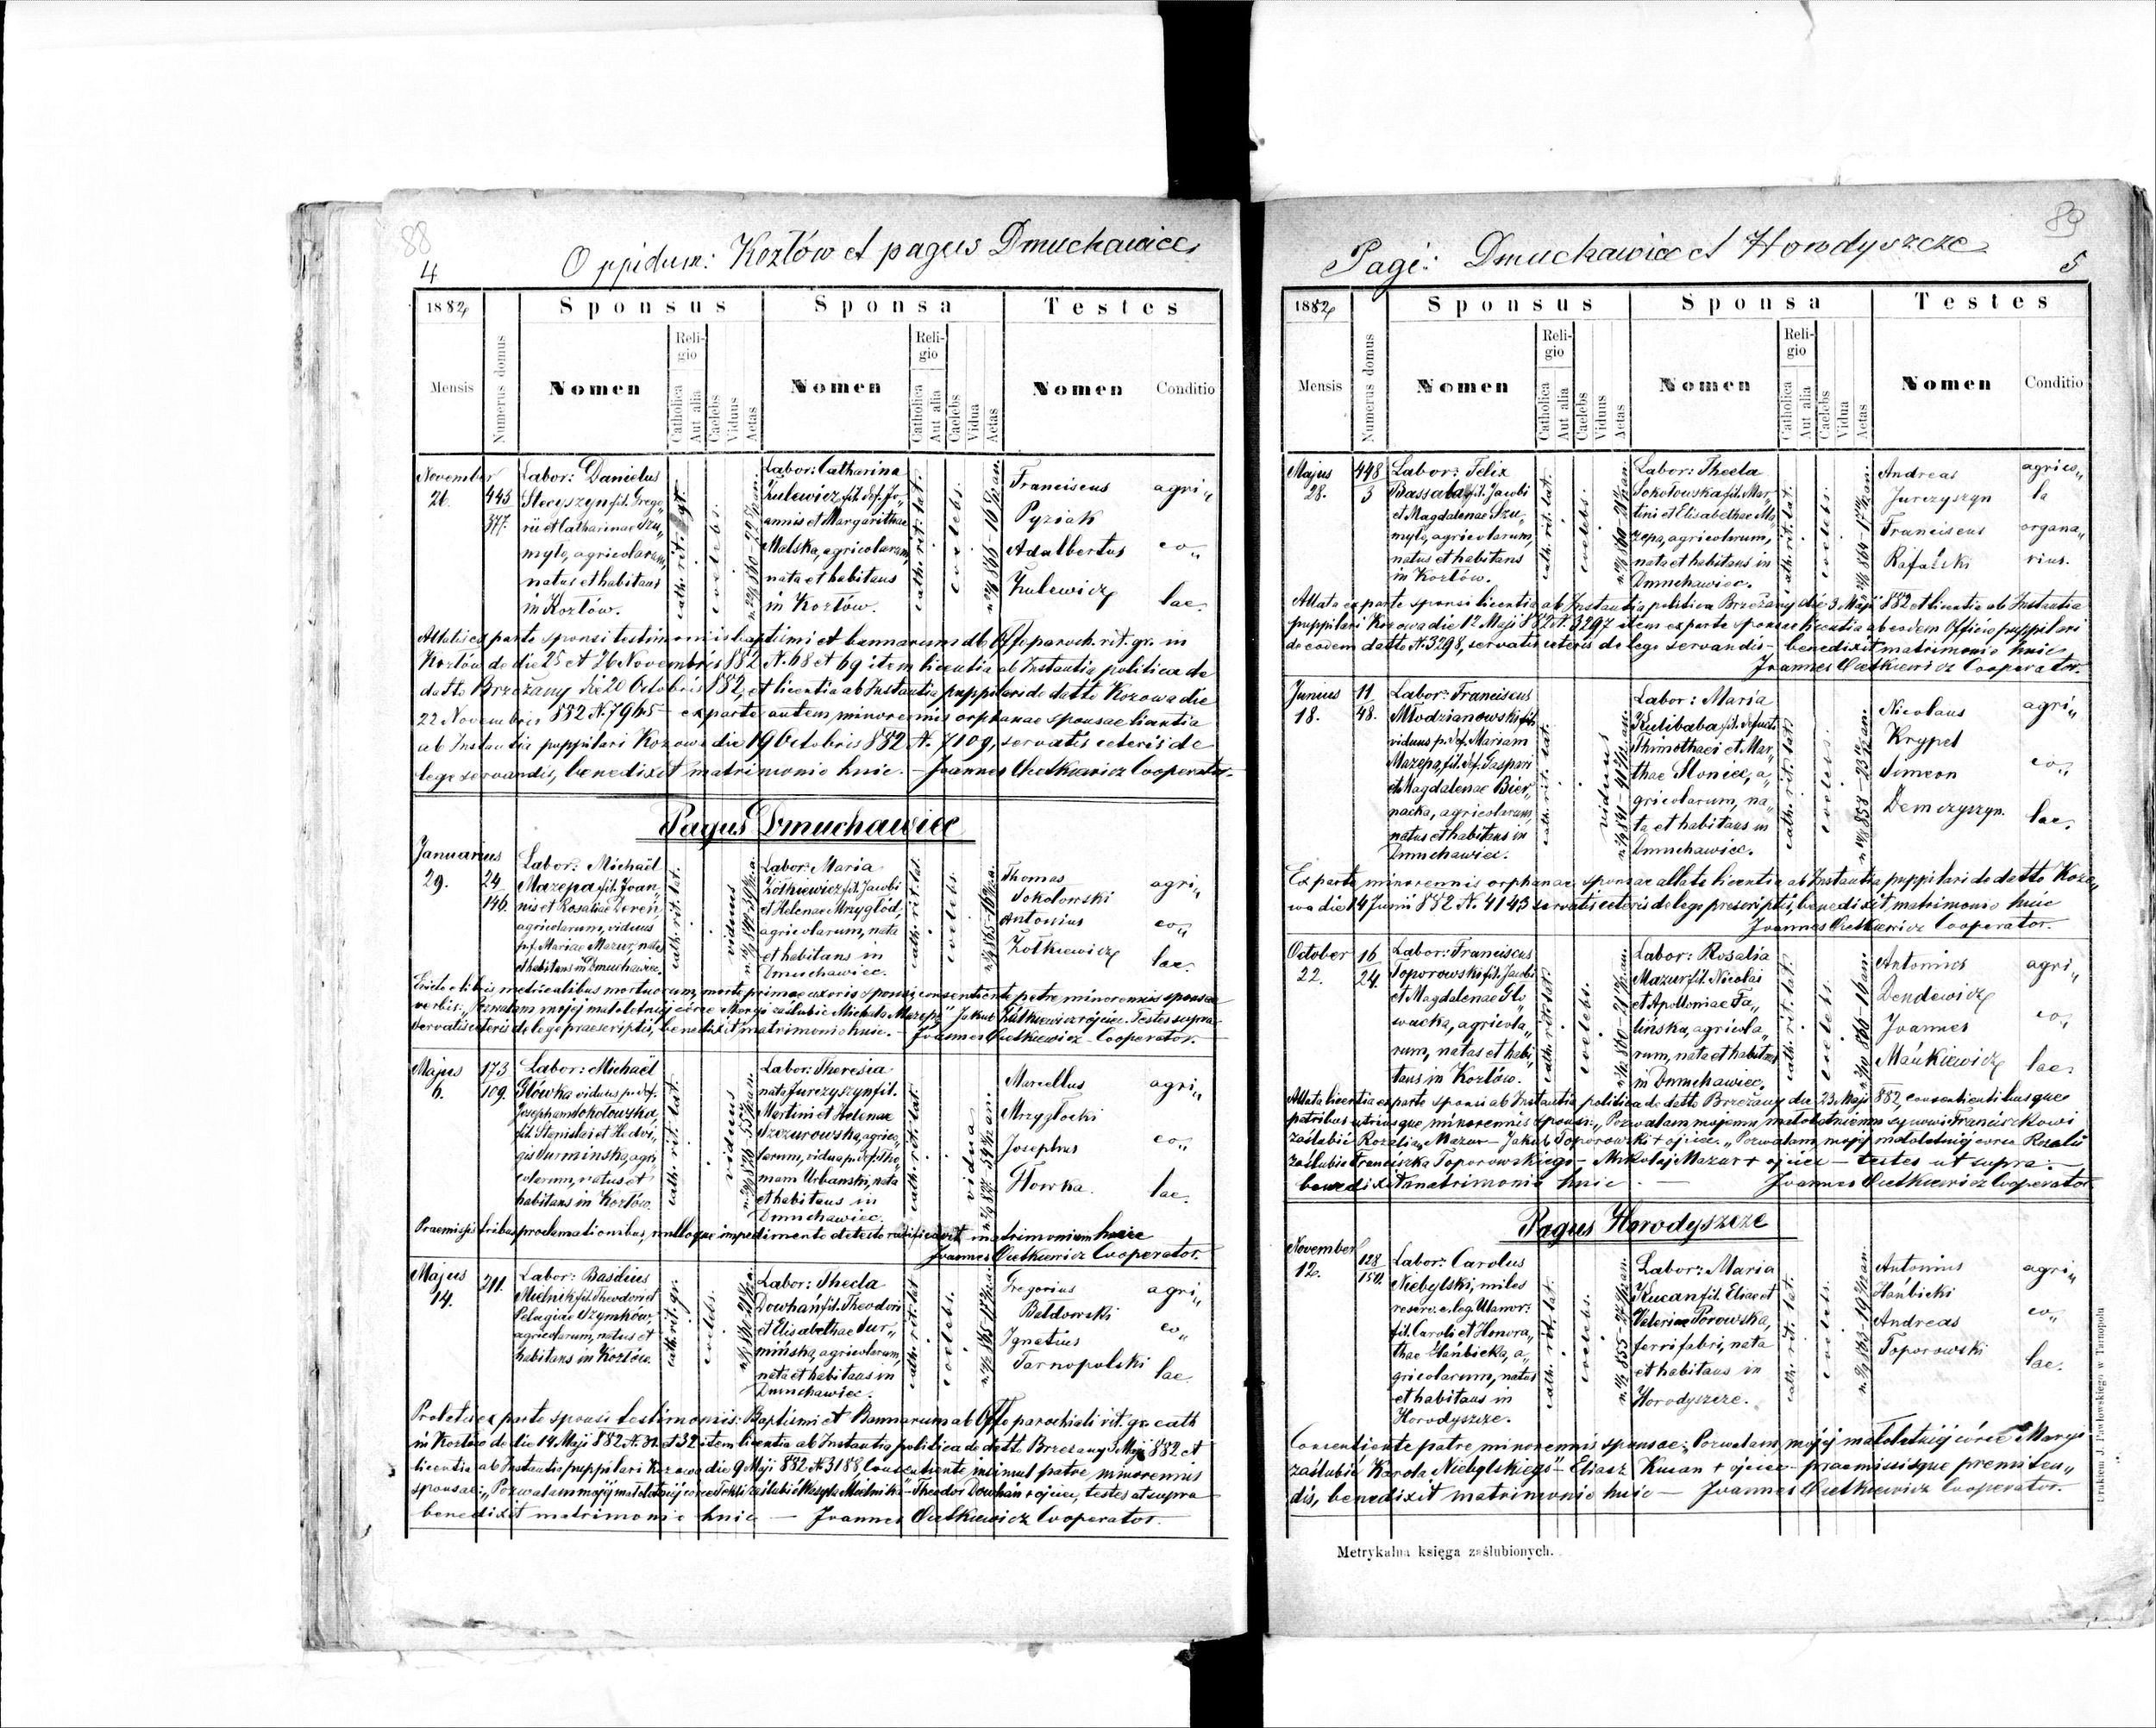 88
4
Oppidum: Kozłów et pagus Dmuchawiec
1882
Sponsus
Sponsa
Testes
Mensis
Numerus domus
Nomen
Religio
Catholica
Aut alia
Caelebs
Viduus
Aetas
Nomen
Religio
Catholica
Aut alia
Caelebs
Vidua
Aetas
Nomen
Conditio
November
26.
445
377.
Labor: Danielus
Stecyszyn fil. Grego„
rii et Catharinae Szu„
myło, agricolarum,
natus et habitans
in Kozłów.
cath. rit. gr.
coelebs.
Labor: Catharina
Zulewicz fil. def. Jo„
annis et Margarithae
Malska, agricolarum,
nata et habitans
in Kozłów.
cath. rit. lat.
coelebs.
Franciscus
Pyziak
Adalbertus
Zulewicz
agri„
co„
lae.
Allatis ex parte sponsi testimoniis baptismi et bannorum ab Offo paroch. rit. gr. in
Kozłów de die 25 et 26 Novembris 882 N. 68 et 69 item licentia ab Instantia politica de
datto Brzeżany die 20 Octobris 882, et licentia ab Instantia puppilari de datto Kozowa die
22 Novembris 882 N. 7965 – ex parte autem minorennis orphanae sponsae licentia
ab Instantia puppilari Kozowa die 19 Octobris 882 N. 7109, servatis ceteris de
lege servandis, benedixit matrimonio huic. – Joannes Cooperator.
Pagus Dmuchawiec
Januarius
29.
24
146.
Labor: Michaël
Mazepa fil. Joan„
nis et Rosaliae
agricolarum, viduus
p. f. Mariae Mazur, natus
et habitans in Dmuchawiec.
cath. rit. lat.
viduus
Labor: Maria
Żółkiewicz fil. Jacobi
et Helenae Mrzygłód,
agricolarum, nata
et habitans in
Dmuchawiec.
cath. rit. lat.
coelebs.
Thomas
Sokolowski
Antonius
Żołkiewicz
agri„
co„
lae.
libris metricalibus mortuorum, morte primae uxoris sponsi, consentiente patre minorennis sponsae
verbis: „Pozwalam mojéj małoletniéj córce Maryi zaślubić Michała Mazepę" Jakub Żółkiewicz ojciec. Testes supra
Servatis ceteris de lege praescriptis, benedixit matrimonio huic. – Joannes Cooperator.
Majus
6.
173
109.
Labor: Michaël
Główka viduus p. def.
Josepham Sokolowska,
fil. Stanislai et Hedvi„
gis Surminska, agri
colarum, natus et
habitans in Kozłów.
cath. rit. lat.
viduus
Labor: Theresia
nata Jurczyszyn fil.
Martini et Helenae
Szczurowska, agrico„
larum, vidua p. def. Tho„
mam Urbanski, nata
et habitans in
Dmuchawiec.
cath. rit. lat.
vidua
Marcellus
Mrzygłocki
Josephus
Głowka.
agri„
co„
lae.
Praemissis tribus proclamationibus, nulloque impedimento detecto ratificavit matrimonium huic
Joannes Cooperator.
Majus
14.
211.
Labor: Basilius
Mielnik fil. Theodori et
Pelagiae Szymków,
agricolarum, natus et
habitans in Kozłów.
cath. rit. gr.
coelebs.
Labor: Thecla
Dowhań fil. Theodori
et Elisabethae Sur„
mińska, agricolarum,
nata et habitans in
Dmuchawiec.
cath. rit. lat.
coelebs.
Gregorius
Bałdowski
Ignatius
Tarnopolski
agri„
co„
lae.
ex parte sponsi testimoniis: Baptismi et Bannorum ab Offo parochiali rit. gr. cath
in Kozłów de die 14 Maji 882 N. 31. et 32 item licentia ab Instantia politica de datto Brzeżany 3 Maji 882 et
licentia ab Instantia puppilari Kozowa die 9 Maji 882 N. 3188, Consentiente insimul patre minorennis
sponsae: „Pozwalam mojéj małoletniéj córce Tekli zaślubić Wasyla Mielnika – Theodor Dowhań + ojciec, testes ut supra
benedixit matrimonio huic – Joannes Cooperator.
89
5
Pagi: Dmuchawiec et Horodyszcze
1882
Sponsus
Sponsa
Testes
Mensis
Numerus domus
Nomen
Religio
Catholica
Aut alia
Caelebs
Viduus
Aetas
Nomen
Religio
Catholica
Aut alia
Caelebs
Vidua
Aetas
Nomen
Conditio
Majus
28.
448
3
Labor: Felix
Bassaba fil. Jacobi
et Magdalenae Szu„
myło, agricolarum,
natus et habitans
in Kozłów.
cath. rit. lat.
coelebs.
Labor: Thecla
Sokołowska fil. Mar„
tini et Elisabethae Ma„
zepa, agricolarum,
nata et habitans in
Dmuchawiec.
cath. rit. lat.
coelebs.
Andreas
Jurczyszyn
Franciscus
Rafalski
agrico„
la
organa„
rius.
Allata ex parte sponsi licentia ab Instantia politica Brzeżany die 3 Maji 882 et licentia ab Instantia
puppilari Kozowa die 12 Maji 882 N. 3297 item ex parte sponsae licentia ab eodem Officio puppilari
de eodem datto N. 3298, servatis ceteris de lege servandis – benedixit matrimonio huic
Joannes Cooperator.
Junius
18.
11
48.
Labor: Franciscus
Młodzianowski fil.
viduus p. def. Mariam
Mazepa, fil. def. Gaspari
et Magdalenae Bier„
nacka, agricolarum,
natus et habitans in
Dmuchawiec.
cath. rit. lat.
viduus
Labor: Maria
Kulibaba fil. defuncti
Thimothaei et Mar„
thae Słoniec, a„
gricolarum, na„
ta et habitans in
Dmuchawiec.
cath. rit. lat.
coelebs.
Nicolaus
Krypel
Simeon
Demczyszyn.
agri„
co„
lae.
Ex parte minorennis orphanae sponsae allata licentia ab Instantia puppilari de datto Kozo„
wa die 14 Junii 882 N. 4143 servatis ceteris de lege prescriptis, benedixit matrimonio huic
Joannes Cooperator.
October
22.
16
24.
Labor: Franciscus
Toporowski fil. Jacobi
et Magdalenae Gło„
wacka, agricola„
rum, natus et habi„
tans in Kozłów.
cath. rit. lat.
coelebs.
Labor: Rosalia
Mazur fil. Nicolai
et Apolloniae Fa„
lińska, agricola„
rum, nata et habitans
in Dmuchawiec.
cath. rit. lat.
coelebs.
Antonius
Dendewicz
Joannes
Mańkiewicz
agri„
co„
lae.
Allata licentia ex parte sponsi ab Instantia politica de datto Brzeżany die 23 Maji 882, consentientibusque
patribus utriusque, minorennis sponsi: „Pozwalam mojemu małoletniemu synowi Franciszkowi
zaślubić Rozalię Mazur – Jakub Toporowski + ojciec. „Pozwalam mojéj małoletniéj córce Rozalii
zaślubić Franciszka Toporowskiego – Mikołaj Mazur + ojciec – testes ut supra. –
benedixit matrimonio huic – Joannes Cooperator.
Pagus Horodyszcze
November
12.
128
Labor: Carolus
Niebylski, miles
reserv. c. leg. Ulanor:
fil. Caroli et Honora„
thae Hańbicka, a„
gricolarum, natus
et habitans in
Horodyszcze.
cath. rit. lat.
coelebs.
Labor: Maria
Kucan fil. Eliae et
Valeriae Porowska,
ferri fabri, nata
et habitans in
Horodyszcze.
cath. rit. lat.
coelebs.
Antonius
Hańbicki
Andreas
Toporowski
agri„
co„
lae.
Consentiente patre minorennis sponsae: „Pozwalam mojéj małoletniéj córce Maryi
zaślubić Karola Niebylskiego" – Eliasz Kucan + ojciec – praemissisque premitten„
dis, benedixit matrimonio huic – Joannes Cooperator.
Metrykalna księga zaślubionych.
Drukiem J. Pawłowskiego w Tarnopolu